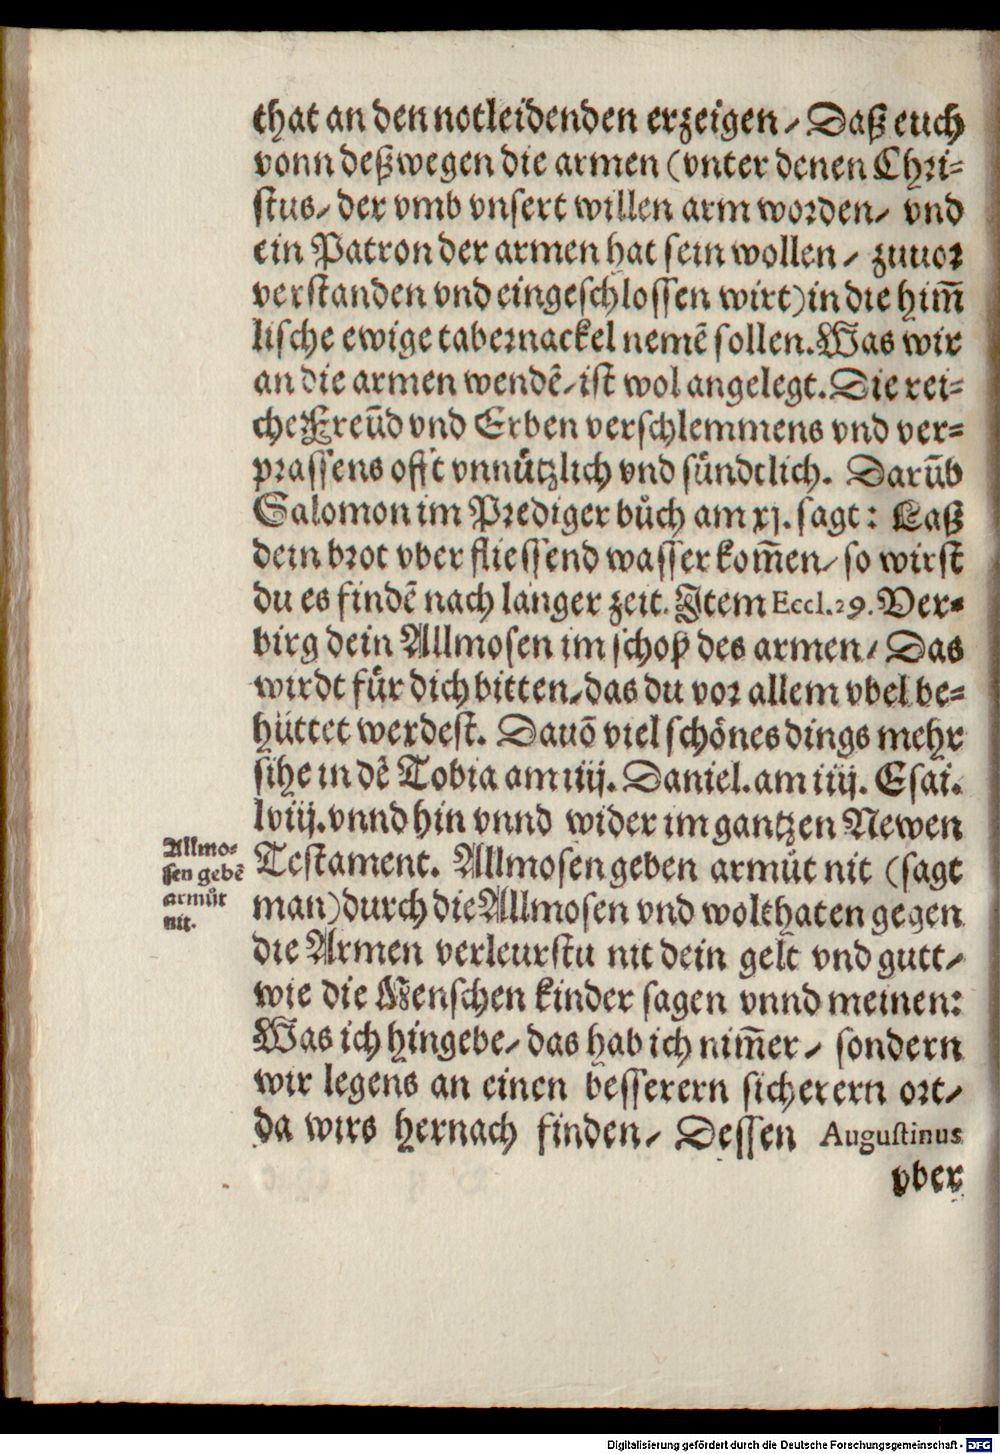 that an den notleidenden erzeigen / Daß euch
vonn deßwegen die armen (vnter denen Chri-
stus / der vmb vnsert willen arm worden / vnd
ein Patron der armen hat sein wollen / zuuor
verstanden vnd eingeschlossen wirt) in die him̃
lische ewige tabernackel nemẽ sollen. Was wir
an die armen wendẽ / ist wol angelegt. Die rei-
che Freũd vnd Erben verschlemmens vnd ver-
prassens offt vnnützlich vnd sündtlich. Darũb
Salomon im Prediger bůch am xj. sagt: Laß
dein brot vber fliessend wasser kom̃en / so wirst
du es findẽ nach langer zeit. Item Eccl. 29. Ver-
birg dein Allmosen im schoß des armen / Das
wirdt für dich bitten / das du vor allem vbel be-
hüttet werdest. Dauõ viel schönes dings mehr
sihe in dẽ Tobia am iiij. Daniel. am iiij. Esai.
lviij. vnnd hin vnnd wider im gantzen Newen
Testament. Allmosen geben armůt nit (sagt
man) durch die Allmosen vnd wolthaten gegen
die Armen verleurstu nit dein gelt vnd gutt /
wie die Menschen kinder sagen vnnd meinen:
Was ich hingebe / das hab ich nim̃er / sondern
wir legens an einen besserern sicherern ort /
da wirs hernach finden / Dessen Augustinus
vber
Allmo-
sen gebẽ
armůt
nit.
Digitalisierung gefördert durch die Deutsche Forschungsgemeinschaft - DFG